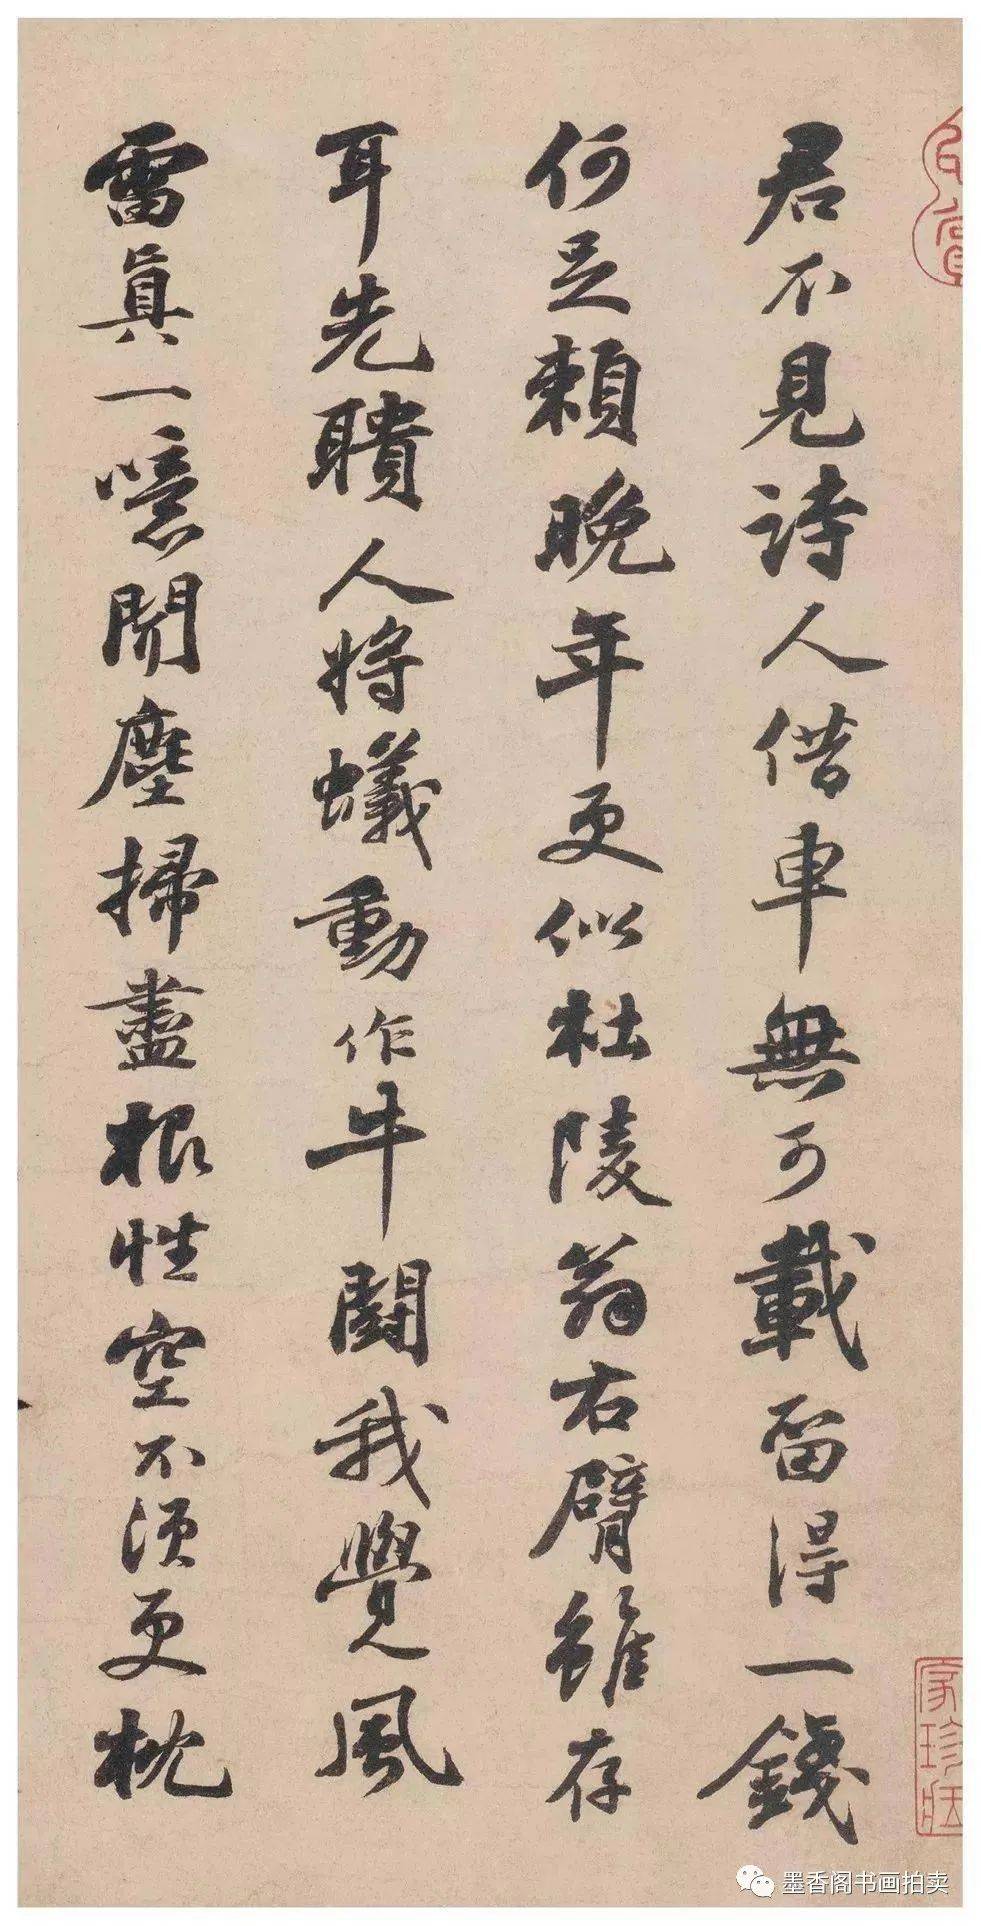 君不見詩人借車無可載留得一錢
何足賴晚年更似杜陵翁右臂雖存
耳先聵人將蟻動作牛鬪我覺風
雷真一噫聞塵掃盡根性空不須更枕
墨香阁书画拍卖